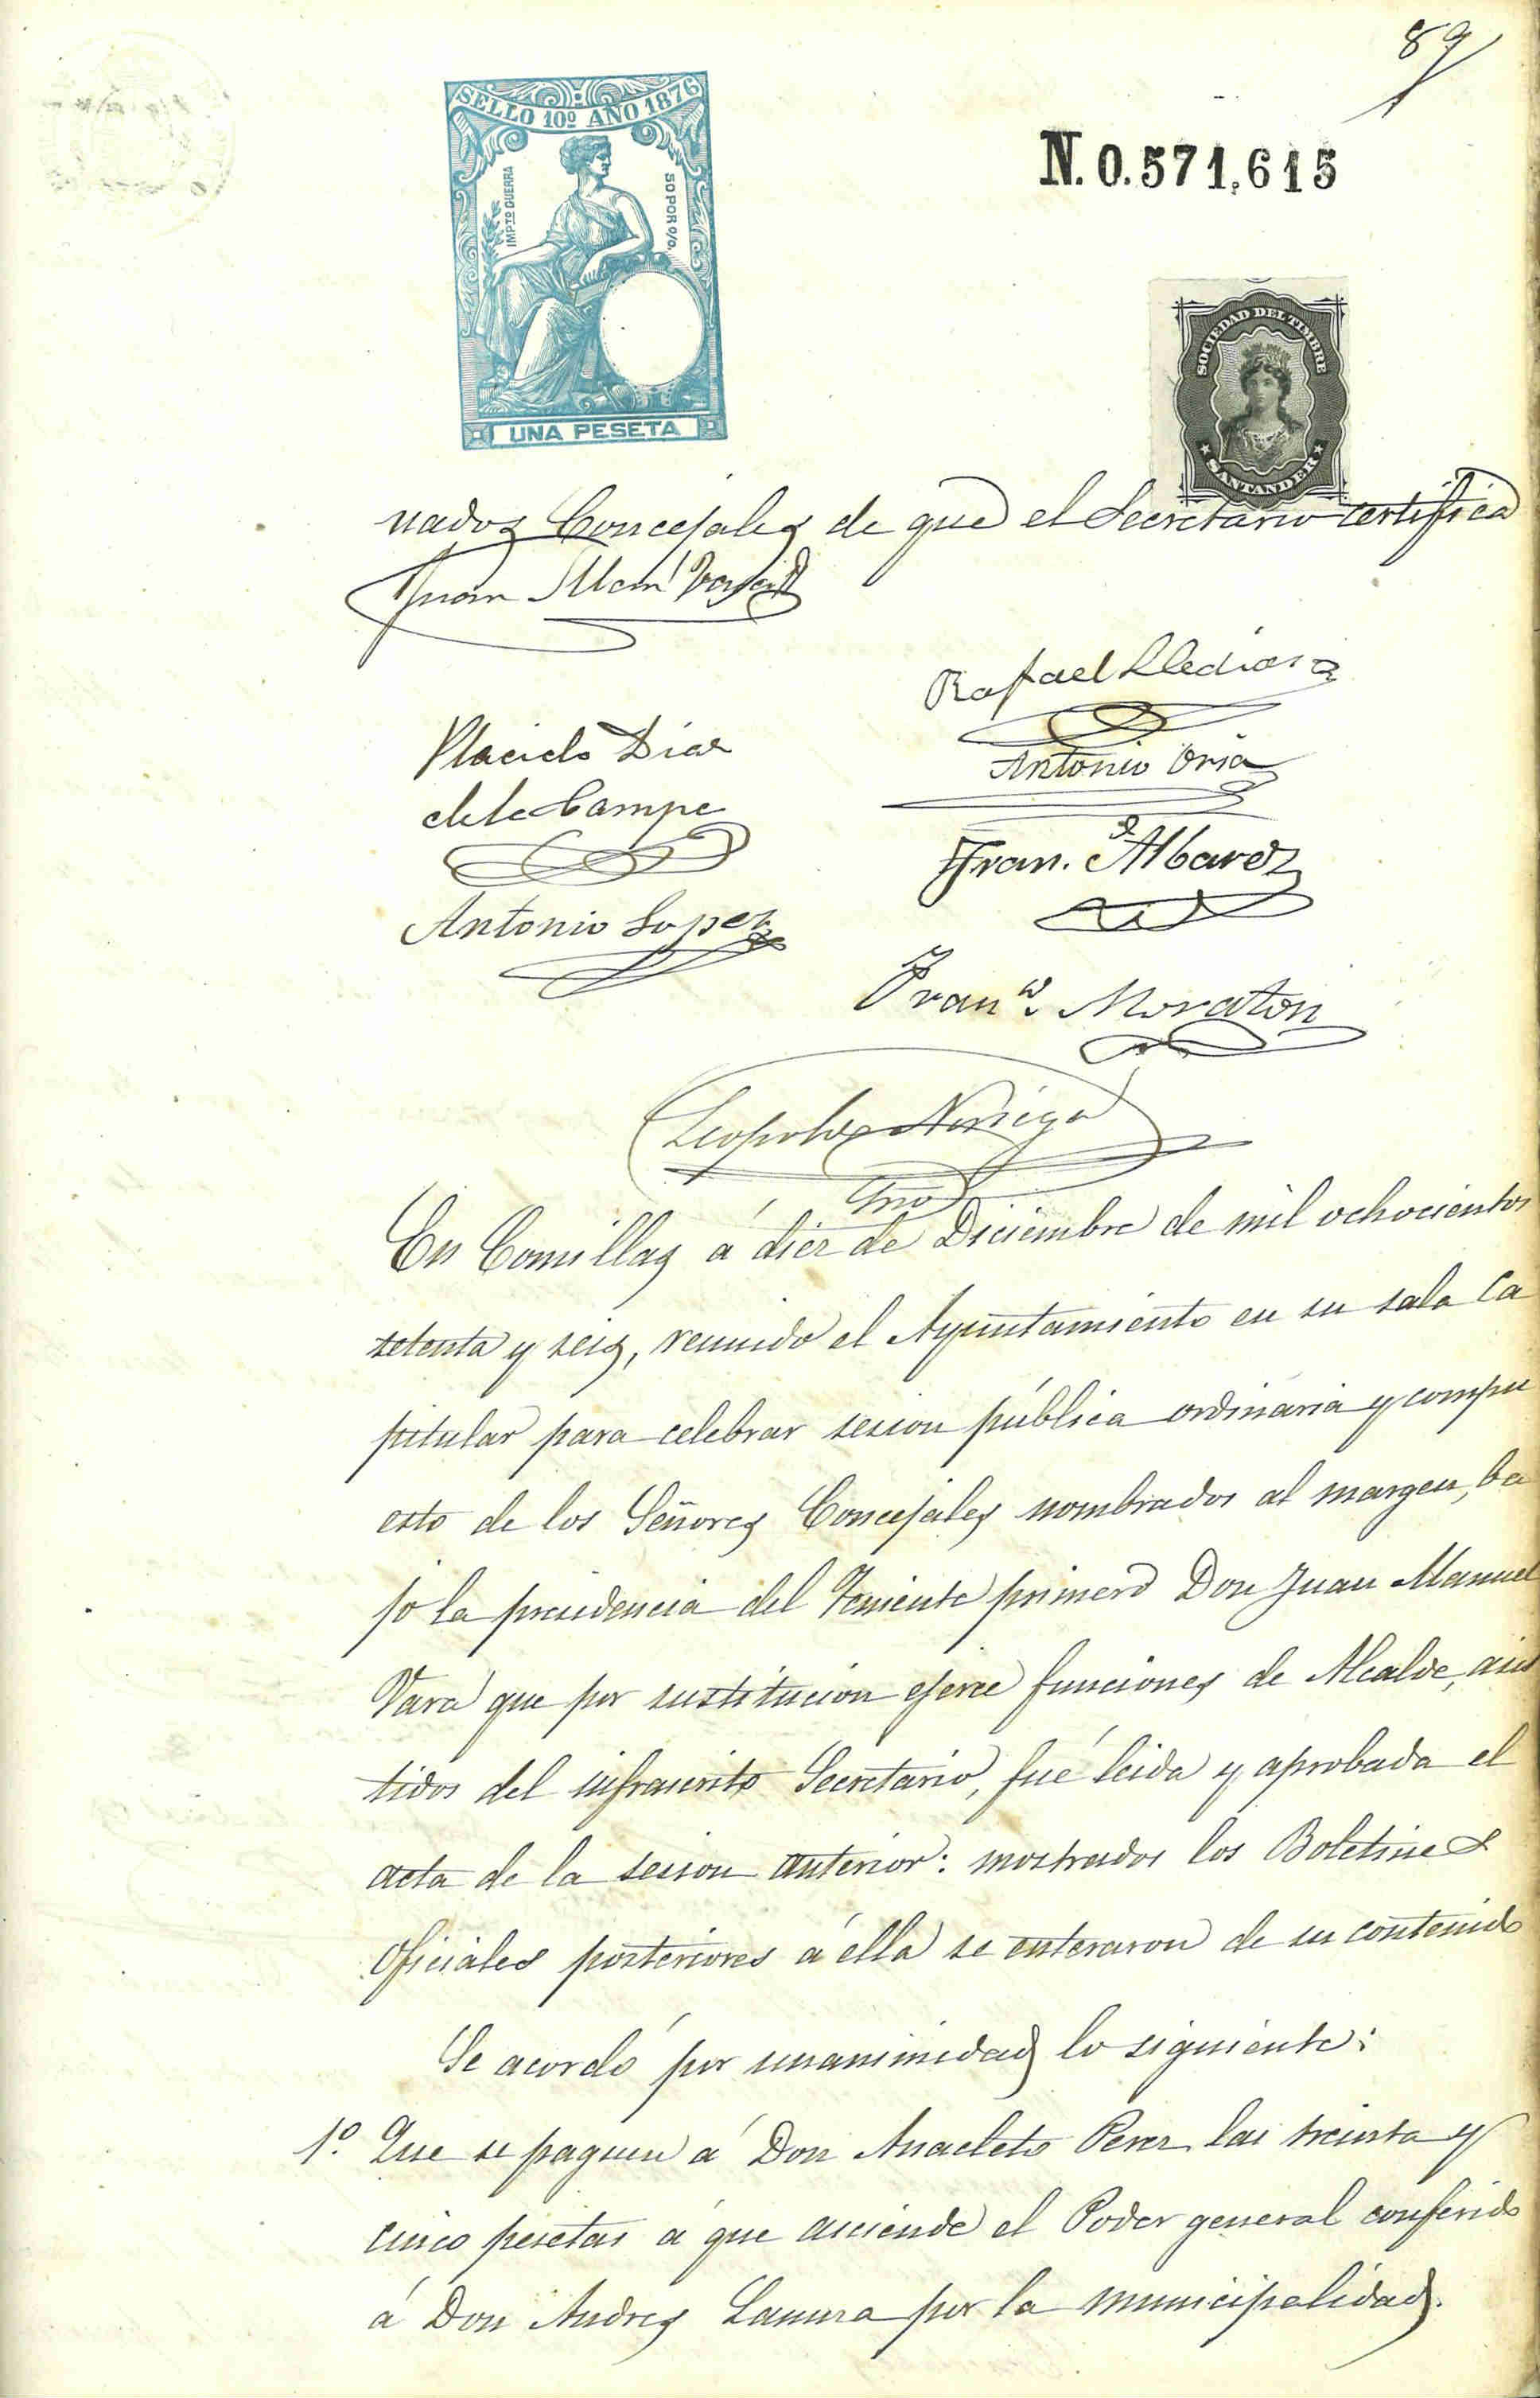 89
SELLO 10º AÑO 1876
IMPTO GUERRA
50 POR 0/0.
UNA PESETA
N. 0.571,615
SOCIEDAD DEL TIMBRE
SANTANDER
nados Concejales de que el Secretario certifica
Juan Manl Vara
Rafael Lledias
Placido Diaz
de la Campa
Antonio Oria
Antonio Lopez
Fran.º Albarez
Franco. Moraton
Leopoldo Noriega
Srio
En Comillas á diez de Diciembre de mil ochocientos
setenta y seis, reunido el Ayuntamiento en su sala Ca
pitular para celebrar sesion pública ordinaria y compu
esto de los Señores Concejales nombrados al margen, ba
jo la presidencia del Teniente primero Don Juan Manuel
Vara que por sustitucion ejerce funciones de Alcalde, asis
tidos del infrascrito Secretario, fué leida y aprobada el
acta de la sesion anterior: mostrados los Boletines
Oficiales posteriores á ella se enteraron de su contenido
Se acordó por unanimidad lo siguiente:
1º. Que se paguen á Don Anacleto Perez las treinta y
cinco pesetas á que asciende el Poder general conferido
á Don Andres Lanuza por la municipalidad.